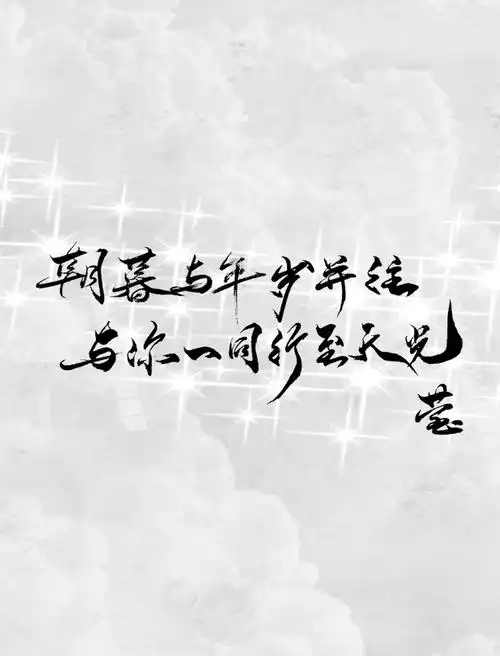 朝暮与年岁并往
与你一同行至天光
莹